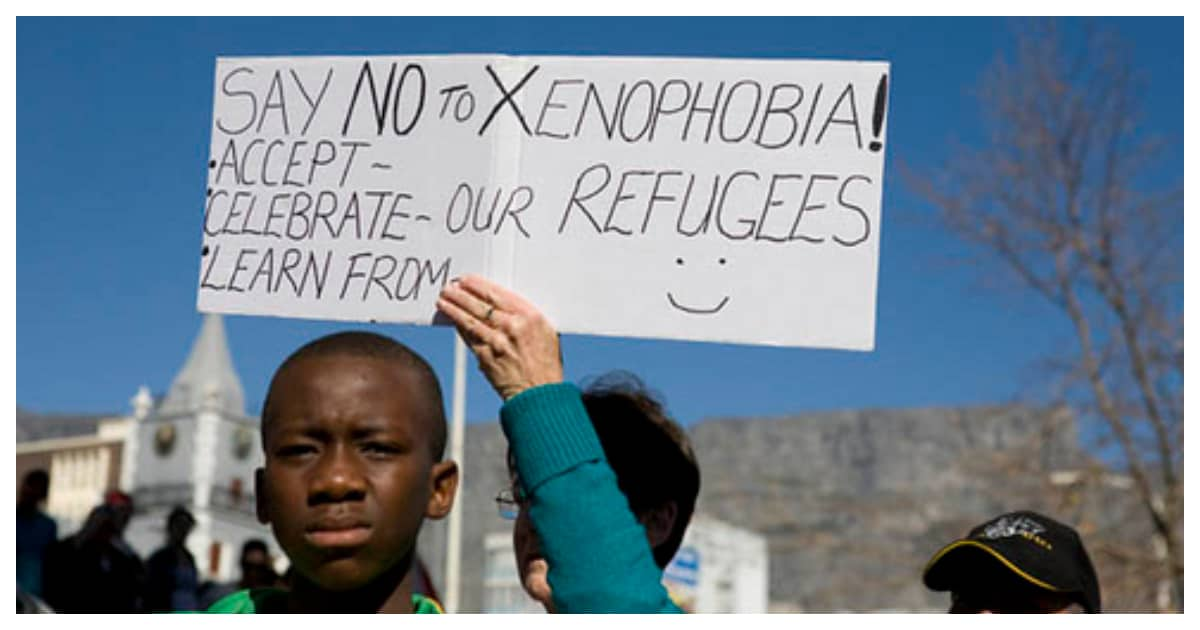 SAY NO TO XENOPHOBIA!
•ACCEPT~
•CELEBRATE~ OUR REFUGEES
•LEARN FROM~